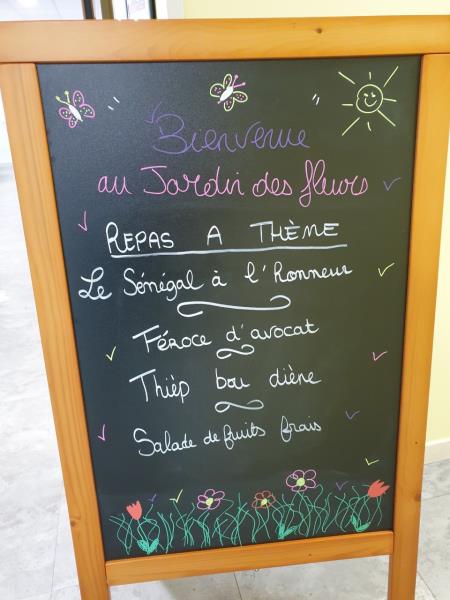 Bienvenue
au Jardin des fleurs
REPAS A THÈME
Le Sénégal à l'honneur
Féroce d'avocat
Thièp bou diène
Salade de fruits frais